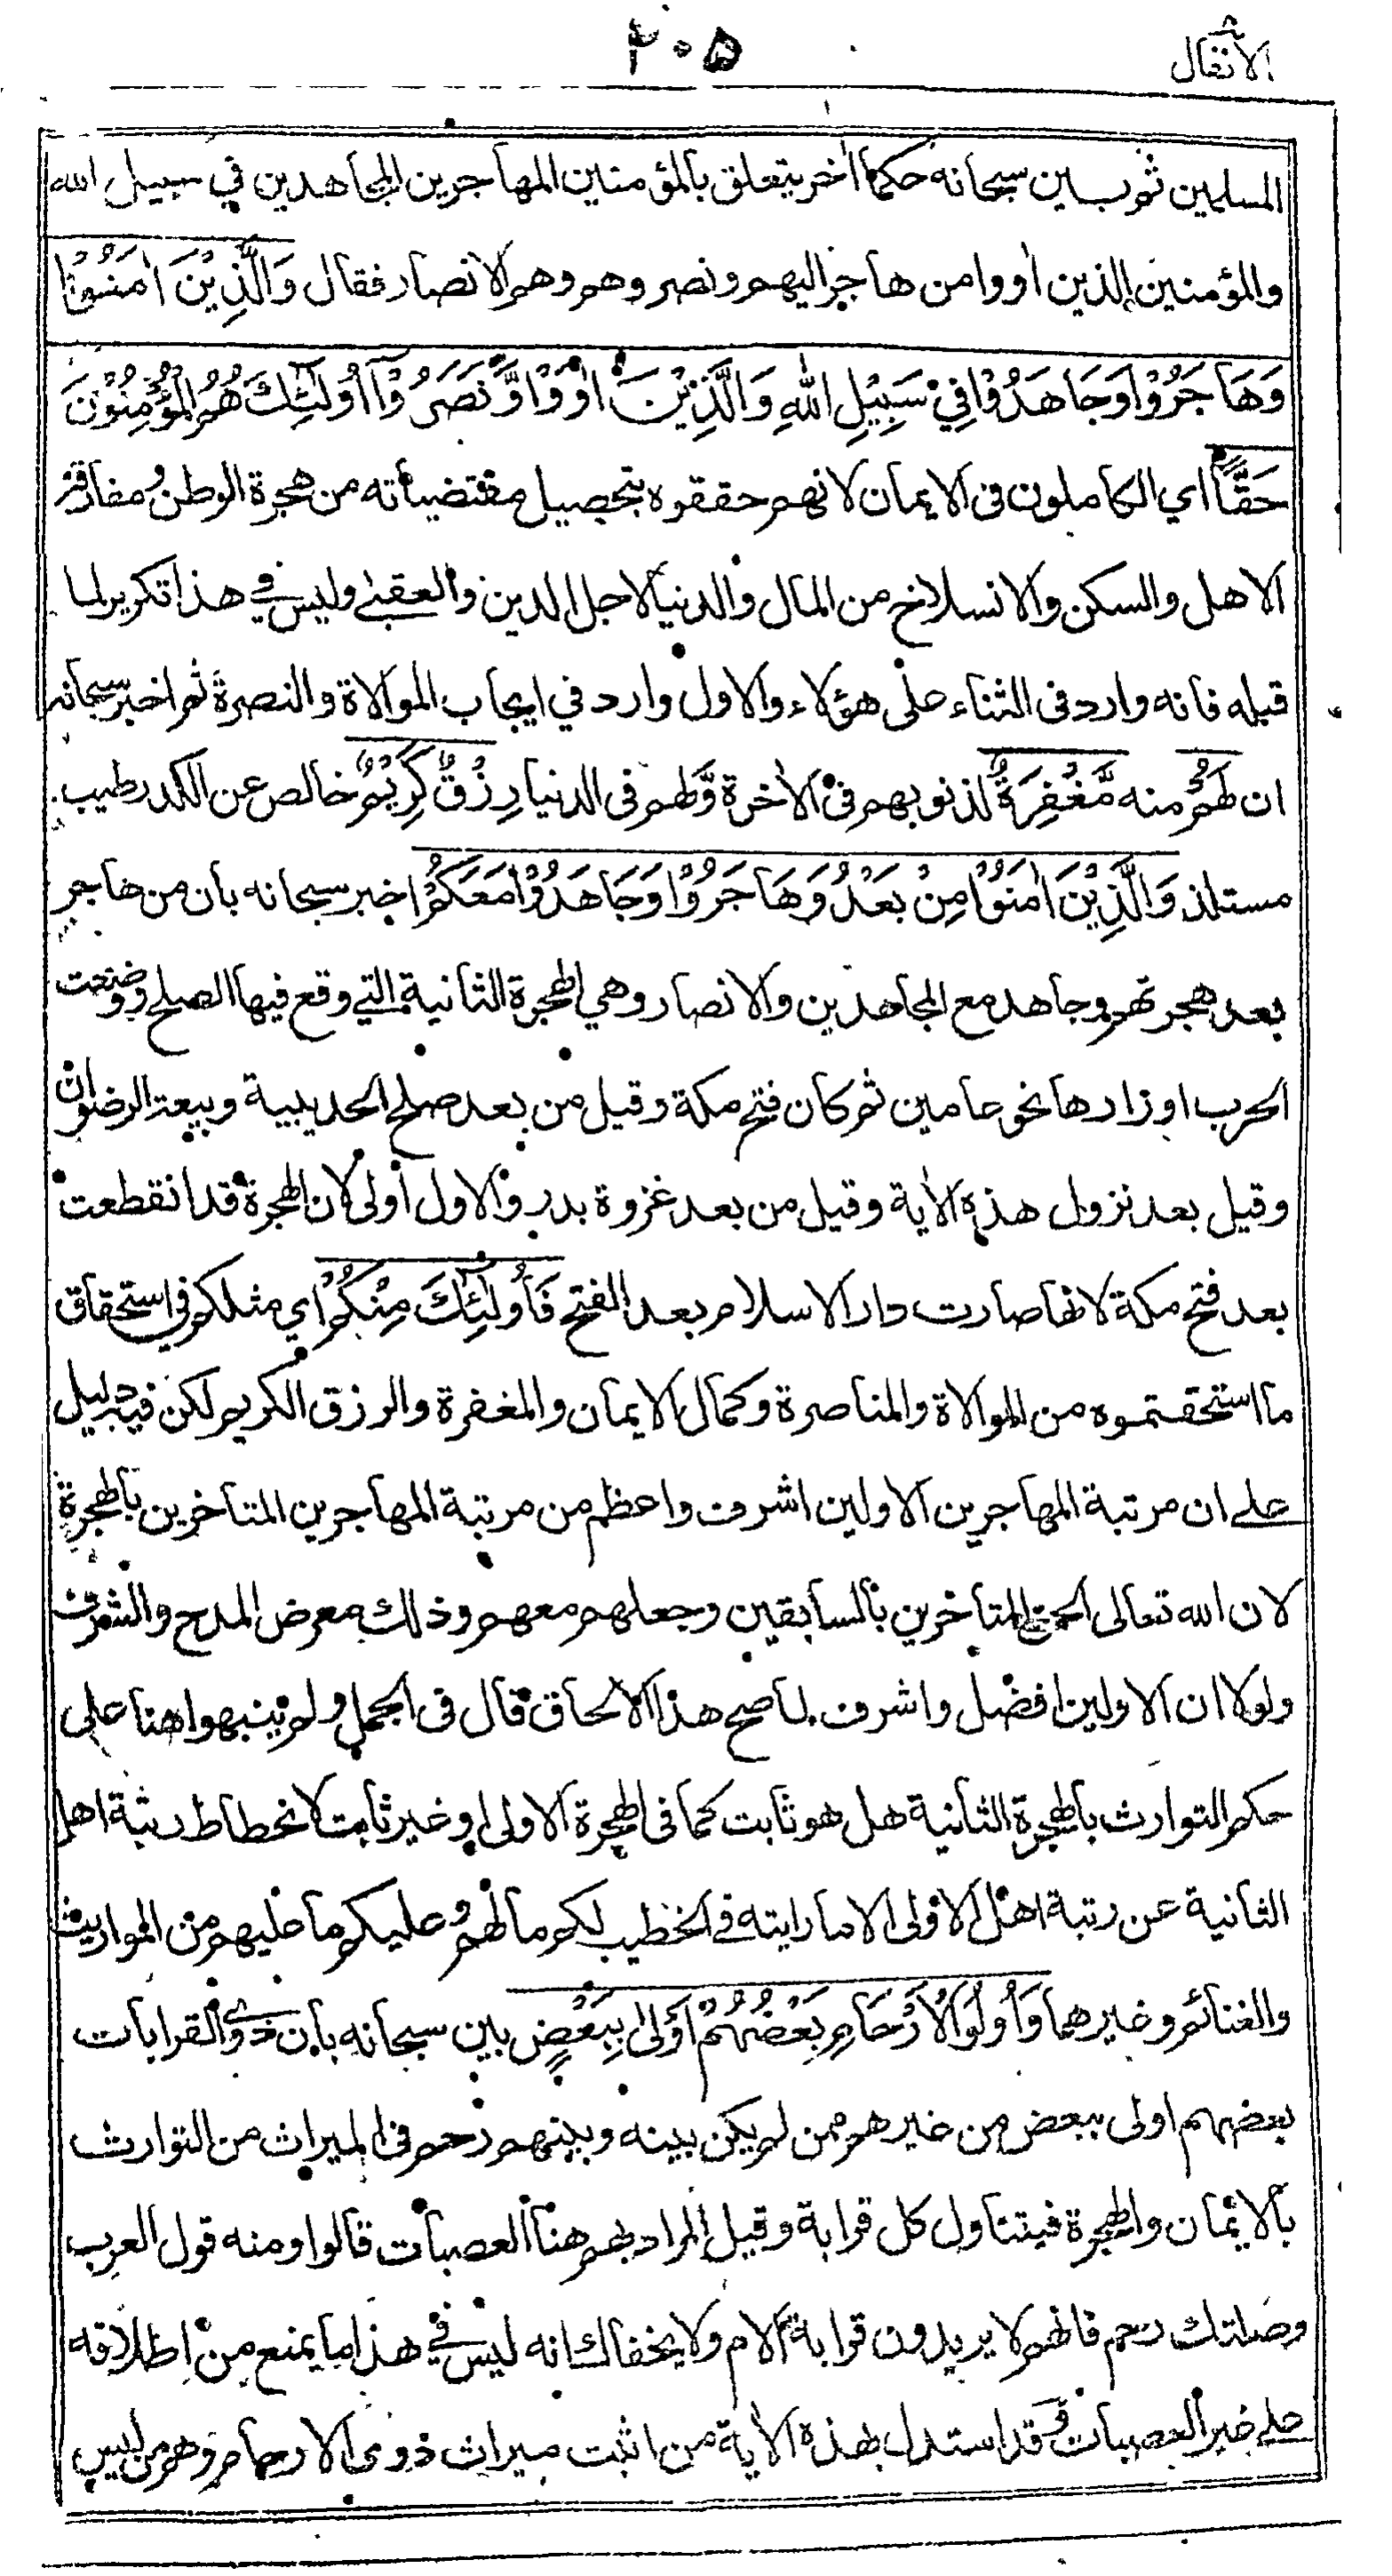 الانفال ٨
٢٠٥
المسلمين ثم بين سبحانه حكما اٰخر يتعلق بالمؤمنين المهاجرين المجاهدين في سبيل الله
والمؤمنين الذين اووا من هاجر اليهم ونصروهم وهم الانصار فقال وَالَّذِيْنَ اٰمَنُوْا
وَهَاجَرُوْا وَجَاهَدُوْا فِيْ سَبِيْلِ اللّٰهِ وَالَّذِيْنَ اٰوَوْا وَّنَصَرُوْٓا اُولٰٓئِكَ هُمُ الْمُؤْمِنُوْنَ
حَقًّا اي الكاملون فى الايمان لانهم حققوه بتحصيل مقتضياته من هجرة الوطن ومفارقة
الاهل والسكن والانسلاخ من المال والدنيا لاجل الدين والعقبى وليس في هذا تكرير لما
قبله فانه وارد فى الثناء على هؤلاء والاول وارد في ايجاب الموالاة والنصرة ثم اخبر سبحانه
ان لَهُمْ منه مَّغْفِرَةٌ لذنوبهم فى الاٰخرة وَّلهم فى الدنيا رِزْقٌ كَرِيْمٌ خالص عن الكدر طيب
مستلذ وَالَّذِيْنَ اٰمَنُوْا مِنْ بَعْدُ وَهَاجَرُوْا وَجَاهَدُوْا مَعَكُمْ اخبر سبحانه بان من هاجر
بعد هجرتهم وجاهد مع المجاهدين والانصار وهي الهجرة الثانية التي وقع فيها الصلح ووضعت
الحرب اوزارها نحو عامين ثم كان فتح مكة وقيل من بعد صلح الحديبية وبيعة الرضوان
وقيل بعد نزول هذه الاٰية وقيل من بعد غزوة بدر والاول اولى لان الهجرة قد انقطعت
بعد فتح مكة لانها صارت دار الاسلام بعد الفتح فَاُولٰٓئِكَ مِنْكُمْ اي مثلكم في استحقاق
ما استحقتموه من الموالاة والمناصرة وكمال الايمان والمغفرة والرزق الكريم لكن فيه دليل
على ان مرتبة المهاجرين الاولين اشرف واعظم من مرتبة المهاجرين المتاخرين بالهجرة
لان الله تعالى الحق المتاخرين بالسابقين وجعلهم معهم وذلك معرض المدح والشرف
ولولا ان الاولين افضل واشرف لما صح هذا الالحاق قال فى الجمل ولم ينبهوا هنا على
حكم التوارث بالهجرة الثانية هل هو ثابت كما فى الهجرة الاولى او غير ثابت لانحطاط رتبة اهل
الثانية عن رتبة اهل الاولى الا ما رايته في الخطيب لكم ما لهم وعليكم ما عليهم من المواريث
والغنائم وغيرهما وَاُولُوا الْاَرْحَامِ بَعْضُهُمْ اَوْلٰى بِبَعْضٍ بين سبحانه بان ذوي القرابات
بعضهم اولى ببعض من غيرهم ممن لم يكن بينه وبينهم رحم فى الميراث من التوارث
بالايمان والهجرة فيتناول كل قرابة وقيل المراد بهم هنا العصبات قالوا ومنه قول العرب
وصلتك رحم فانهم لا يريدون قرابة الام ولا يخفاك انه ليس في هذا ما يمنع من اطلاقه
على غير العصبات وقد استدل بهذه الاٰية من اثبت ميراث ذوى الارحام وهم من ليس